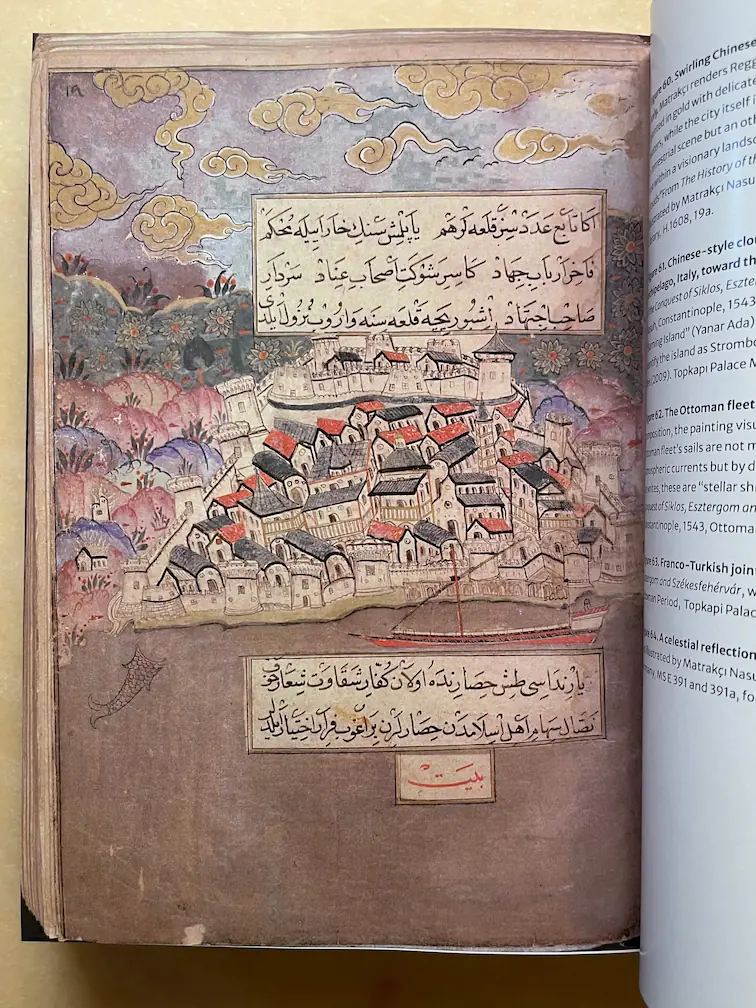 ١٩
اكا تابع عدد سز قلعه لر هم ياپلمش سنك خارا ايله محكم
فاخر ارباب جهاد كاسر شوكت اصحاب عناد سردار
صاحب اجتهاد اشبو ريجه قلعه سنه واروب نزول ايلدى
طش حصارنده اولان كفار شقاوت شعار خوف
نصال سهام اهل اسلامدن حصارلرن براغوب فرار اختيار
بيت
60. Swirling Chinese
Matrakçı renders Regg
in gold with delicate
while the city itself i
scene but an oth
within a visionary landsc
From The History of th
by Matrakçı Nasu
H.1608, 19a.
61. Chinese-style clou
Italy, toward th
Conquest of Siklos, Eszter
Constantinople, 1543
Island” (Yanar Ada)
the island as Strombo
(2009). Topkapı Palace M
62. The Ottoman fleet
the painting visu
fleet's sails are not m
currents but by d
these are “stellar shi
of Siklos, Esztergom an
1543, Ottoma
63. Franco-Turkish joint
and Székesfehérvár, w
Period, Topkapi Palac
64. A celestial reflection
by Matrakçı Nasu
MS E 391 and 391a, fo